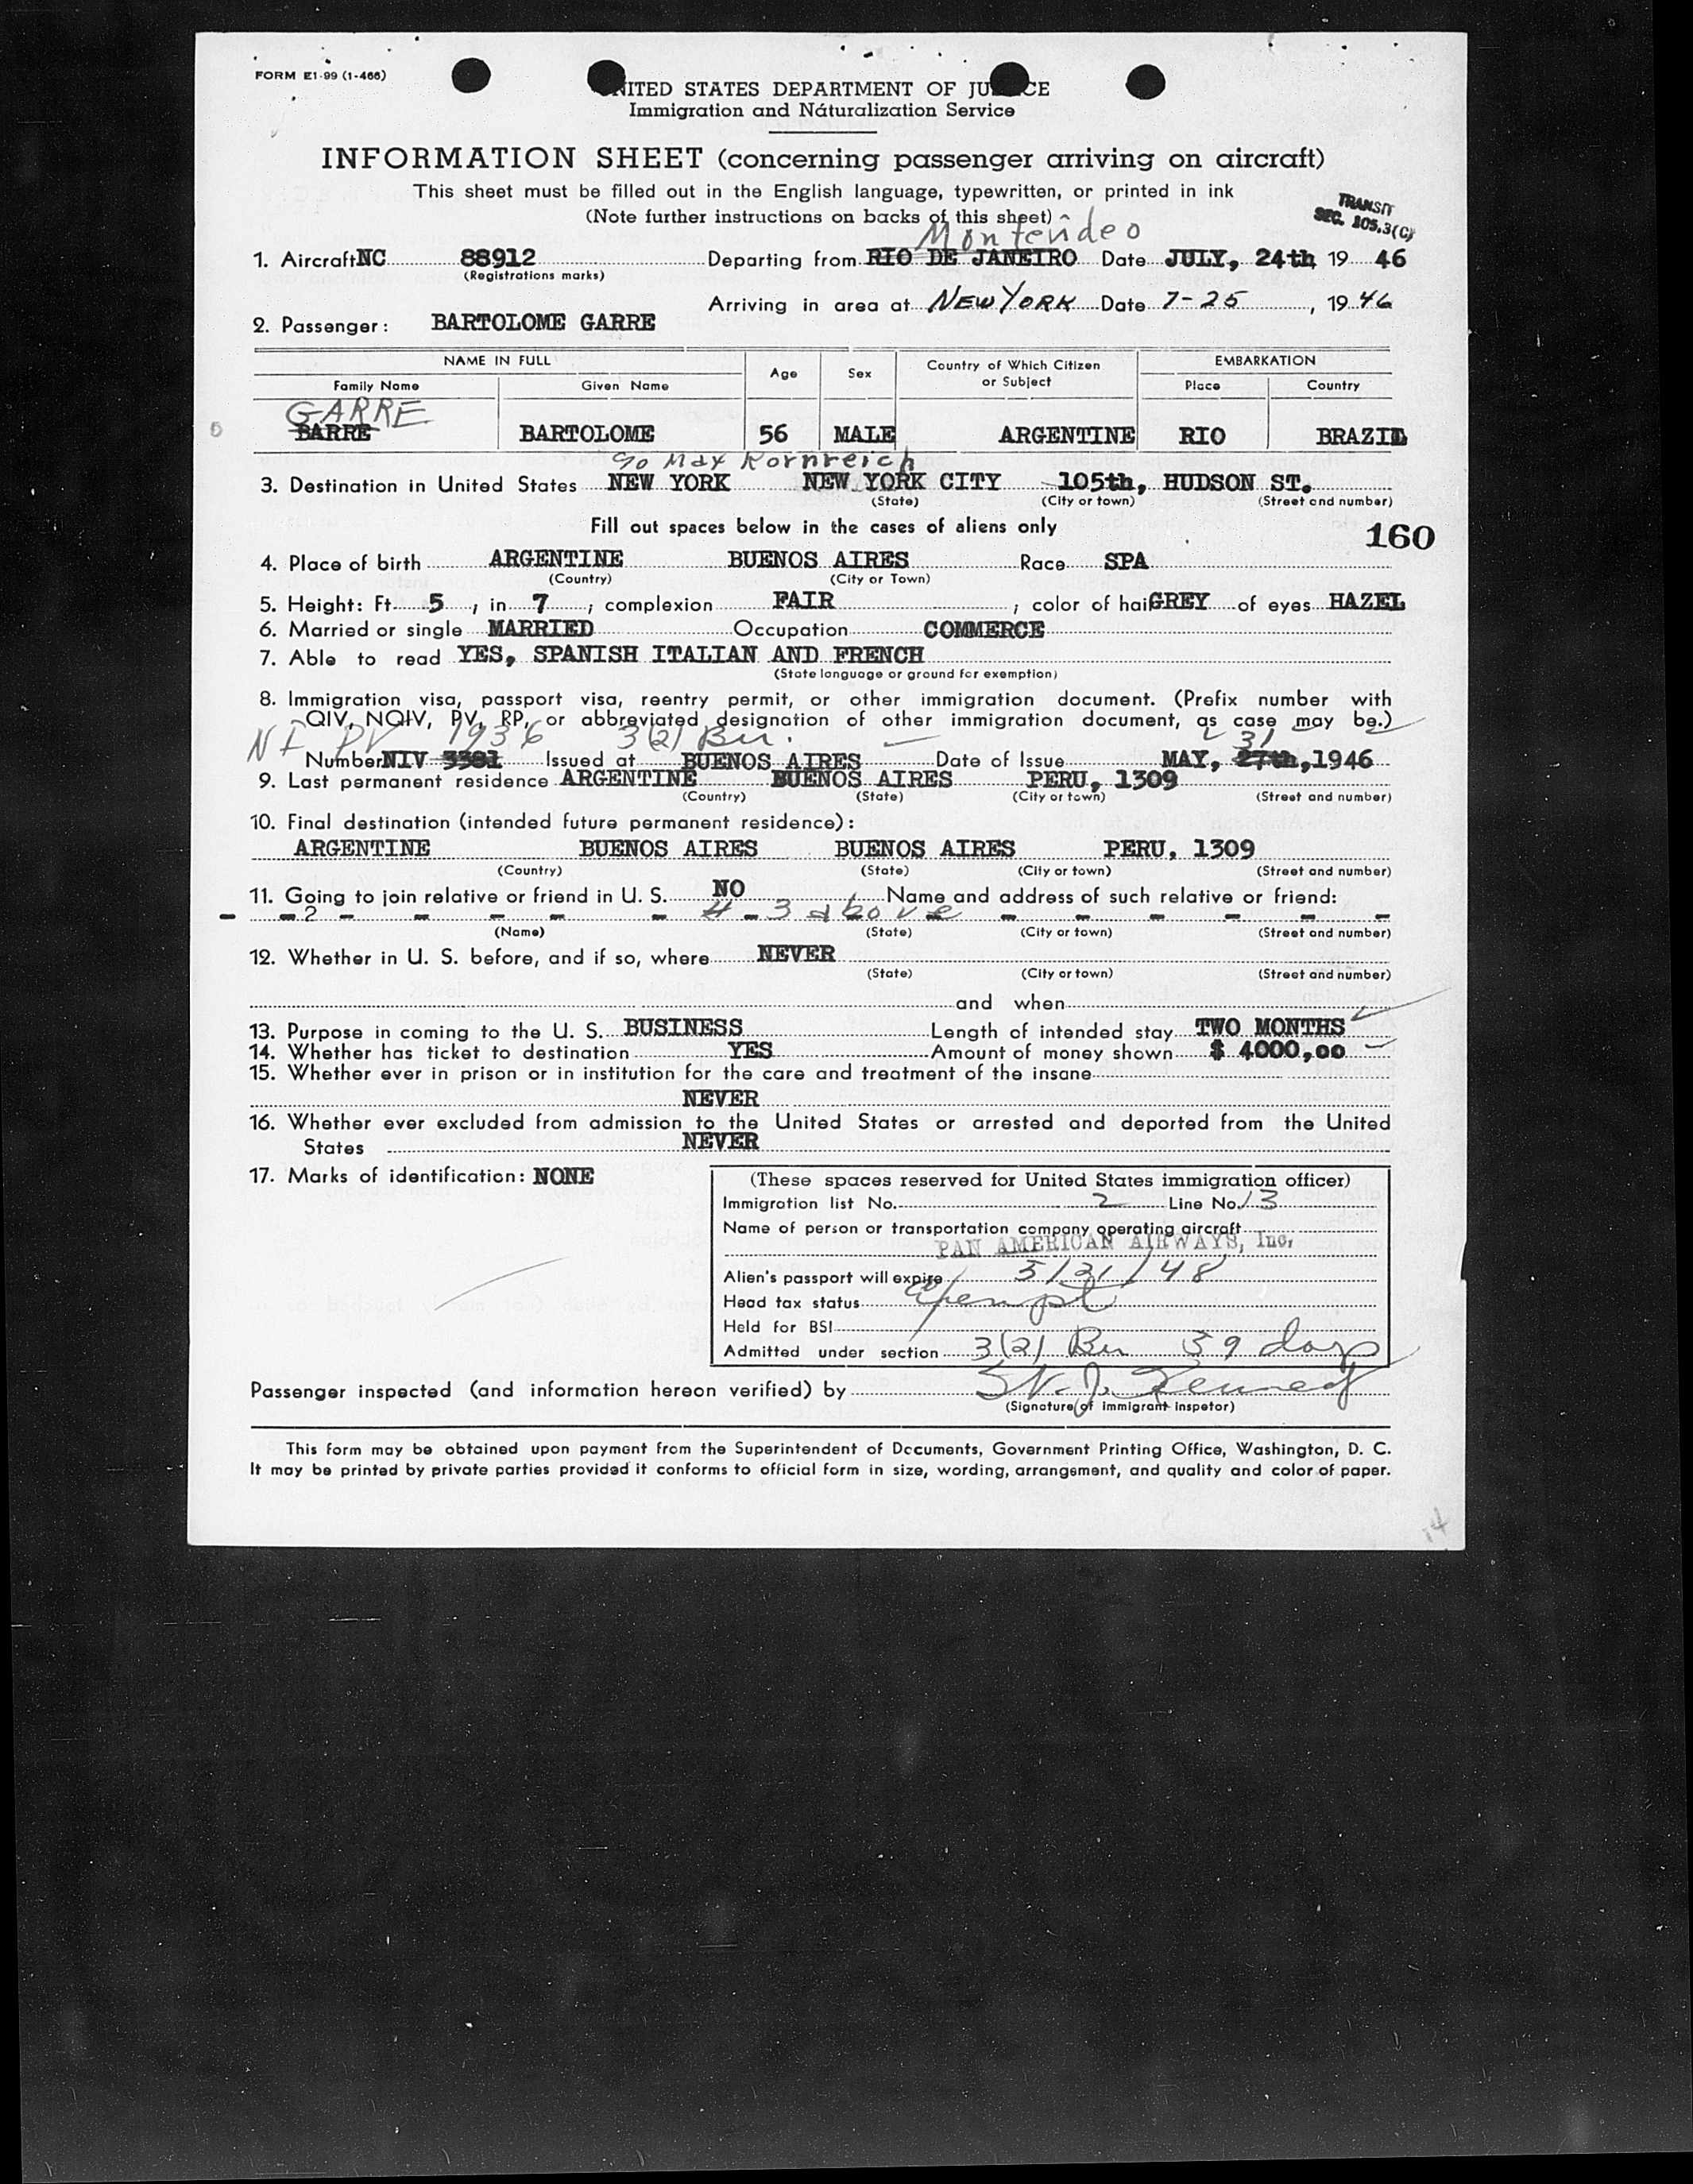 FORM E1-99 (1-466)
UNITED STATES DEPARTMENT OF JUSTICE
Immigration and Naturalization Service
INFORMATION SHEET (concerning passenger arriving on aircraft)
This sheet must be filled out in the English language, typewritten, or printed in ink
(Note further instructions on backs of this sheet)
TRANSIT
SEC. 105.3(C)
Montevideo
1. Aircraft NC 88912 Departing from RIO DE JANEIRO Date JULY, 24th 19 46
(Registrations marks)
Arriving in area at NEW YORK Date 7-25, 1946
2. Passenger: BARTOLOME GARRE
NAME IN FULL Age Sex Country of Which Citizen or Subject EMBARKATION
Family Name Given Name Place Country
GARRE
BARRE BARTOLOME 56 MALE ARGENTINE RIO BRAZIL
c/o Max Kornreich
3. Destination in United States NEW YORK NEW YORK CITY 105th, HUDSON ST.
(State) (City or town) (Street and number)
Fill out spaces below in the cases of aliens only
160
4. Place of birth ARGENTINE BUENOS AIRES Race SPA
(Country) (City or Town)
5. Height: Ft. 5, in 7; complexion FAIR; color of hair GREY of eyes HAZEL
6. Married or single MARRIED Occupation COMMERCE
7. Able to read YES, SPANISH ITALIAN AND FRENCH
(State language or ground for exemption)
8. Immigration visa, passport visa, reentry permit, or other immigration document. (Prefix number with
QIV, NQIV, PV, RP, or abbreviated designation of other immigration document, as case may be.)
NI PV 1936 3(2) Bu. 31
Number NIV 3381 Issued at BUENOS AIRES Date of Issue MAY, 27th, 1946
9. Last permanent residence ARGENTINE BUENOS AIRES PERU, 1309
(Country) (State) (City or town) (Street and number)
10. Final destination (intended future permanent residence):
ARGENTINE BUENOS AIRES BUENOS AIRES PERU, 1309
(Country) (State) (City or town) (Street and number)
11. Going to join relative or friend in U. S. NO Name and address of such relative or friend:
- - 2 - - - - # - 3 above - - - - - -
(Name) (State) (City or town) (Street and number)
12. Whether in U. S. before, and if so, where NEVER
(State) (City or town) (Street and number)
and when
13. Purpose in coming to the U. S. BUSINESS Length of intended stay TWO MONTHS
14. Whether has ticket to destination YES Amount of money shown $ 4000,00
15. Whether ever in prison or in institution for the care and treatment of the insane
NEVER
16. Whether ever excluded from admission to the United States or arrested and deported from the United
States NEVER
17. Marks of identification: NONE
(These spaces reserved for United States immigration officer)
Immigration list No. 2 Line No. 13
Name of person or transportation company operating aircraft
PAN AMERICAN AIRWAYS, Inc.
Alien's passport will expire 5/31/48
Head tax status Exempt
Held for BSI
Admitted under section 3(2) Bu 59 days
Passenger inspected (and information hereon verified) by
(Signature of immigrant inspetor)
This form may be obtained upon payment from the Superintendent of Documents, Government Printing Office, Washington, D. C.
It may be printed by private parties provided it conforms to official form in size, wording, arrangement, and quality and color of paper.
14